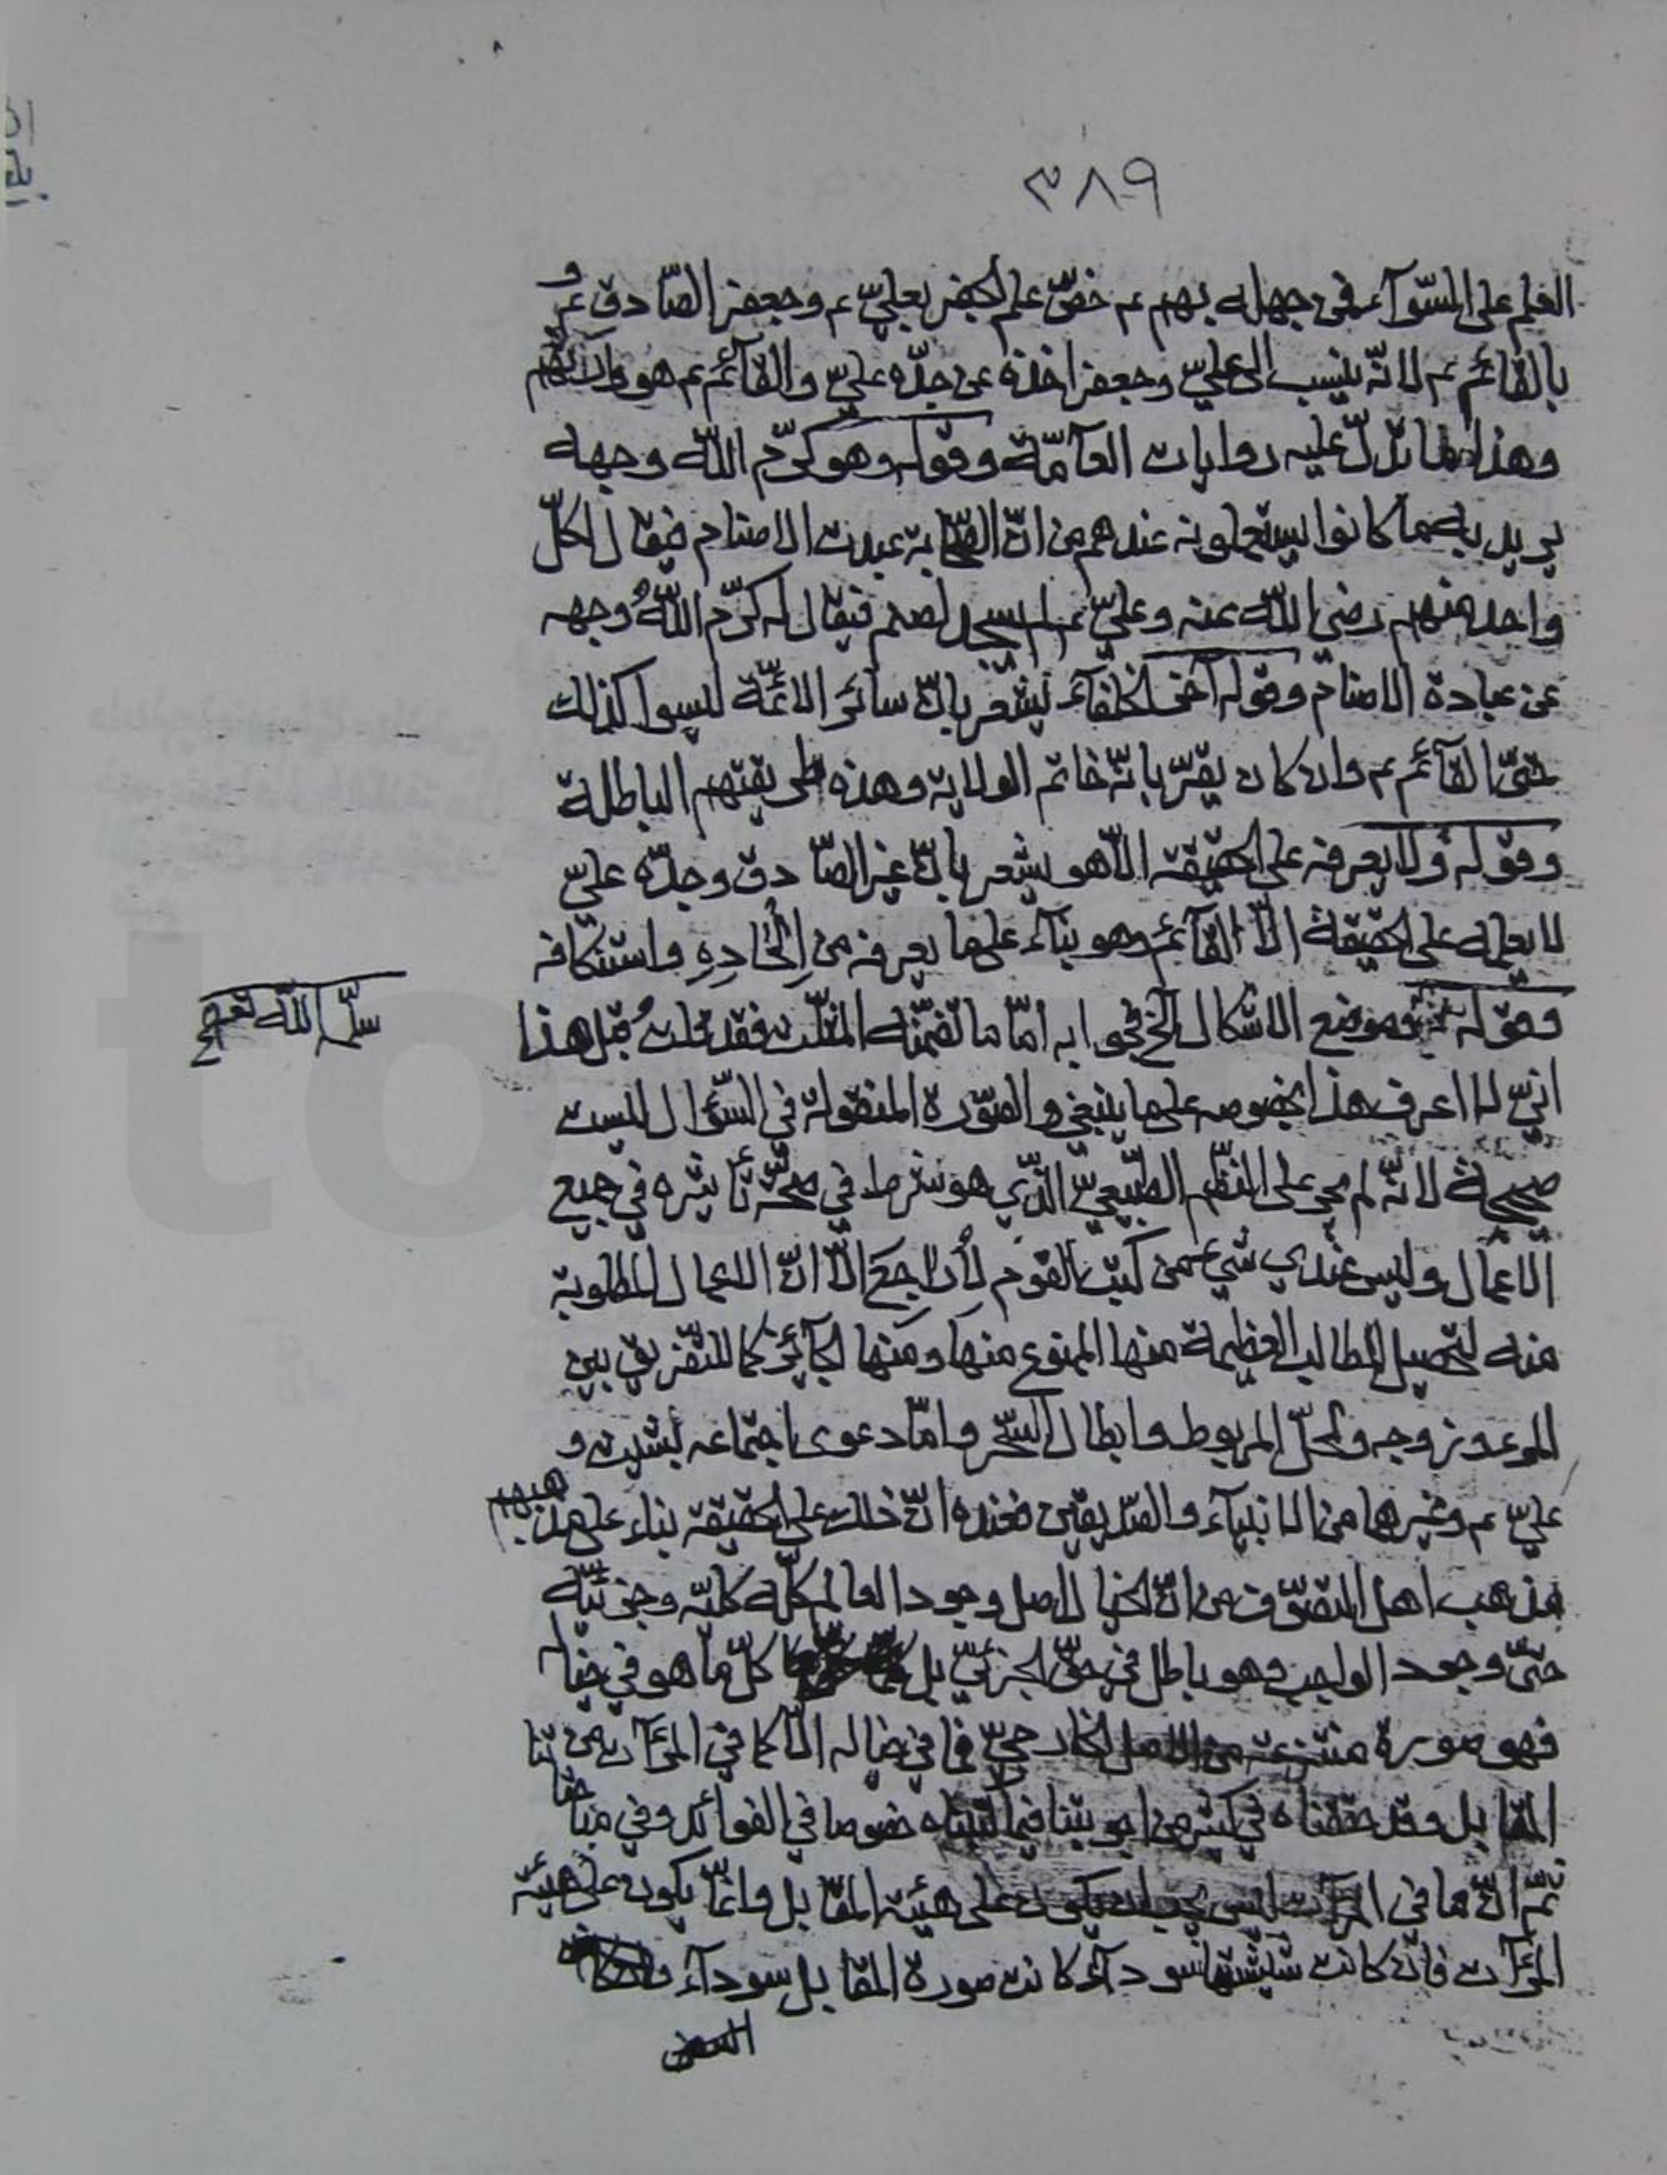 ٣٨٩
العلم على السّوآء فمن جهله بهم ع خصّ علم الجفر بعليّ ع وجعفر الصّادق ع و
بالقائم ع لانّه ينسب الى عليّ وجعفر اخذه عن جدّه عليّ والقآئم ع هو
وهذا ما تدلّ عليه روايات العآمّة وقوله وهو كرّم اللّه وجهه
يريد به ما كانوا يستعملونه عندهم من انّ الصّحابة عبدت الاصنام فيقال لكلّ
واحد منهم رضي اللّه عنه وعليّ ع لم يسجد لصنم فيقال له كرّم اللّهُ وجهه
عن عبادة الاصنام وقوله آخر الخلفآء يشعر بانّ سائر الائمّة ليسوا كذلك
حتّى القآئم ع وان كان يقرّ بانّه خاتم الولاية وهذه طريقتهم الباطلة
وقوله ولا يعرفه على الحقيقة الّا هو يشعر بانّ غير الصّادق وجدّه عليّ
لا يعلمه على الحقيقة الّا القآئم وهو بناء على ما يعرفه من اِلْحَادِهِ واستنكافه
وقوله وموضع الاشكال الخ فجوابه امّا ما تضمّنه المثلّث فقد قلتُ قبل هذا
سلّمه اللّه تعالى
انّي لا اعرف هذا بخصوصه على ما ينبغي والصّورة المنقولة في السّؤال ليست
صحيحة لانّه لم يجر على النّظم الطّبيعيّ الّذي هو شرط في صحّة تأثيره في جميع
الاعمال وليس عندي شيء من كتب القوم لأراجع الّا انّ الاعمال المطلوبة
منه لتحصيل المطالب العظيمة منها الممنوع منها ومنها الجآئز كالتّفريق بين
المرء وزوجه وحلّ المربوط وابطال السّحر وامّا دعوى اجتماعه بشيث و
عليّ ع وغيرهما من الانبيآء والصّدّيقين فعنده انّ ذلك على الحقيقة بناء على
مذهب اهل التصّوّف من انّ الخيال اصل وجود العالم كلّه كليّه وجزئيّه
حتّى وجود الواجب وهو باطل في حقّ الجزئيّ بل كلّ ما هو في خياله
فهو صورة منتزعة من الاصل الخارجيّ فما في خياله الّا كما في المرآت من
المقابل وقد حقّقناه في كثير من اجوبتنا فيما كتبناه خصوصا في الفوائد وفي
ثمّ انّ ما في المرآت ليس يجب ان يكون على هيئة المقابل وانّما يكون على هيئة
المرآت فان كانت شيشتها سودآء كانت صورة المقابل سودآء